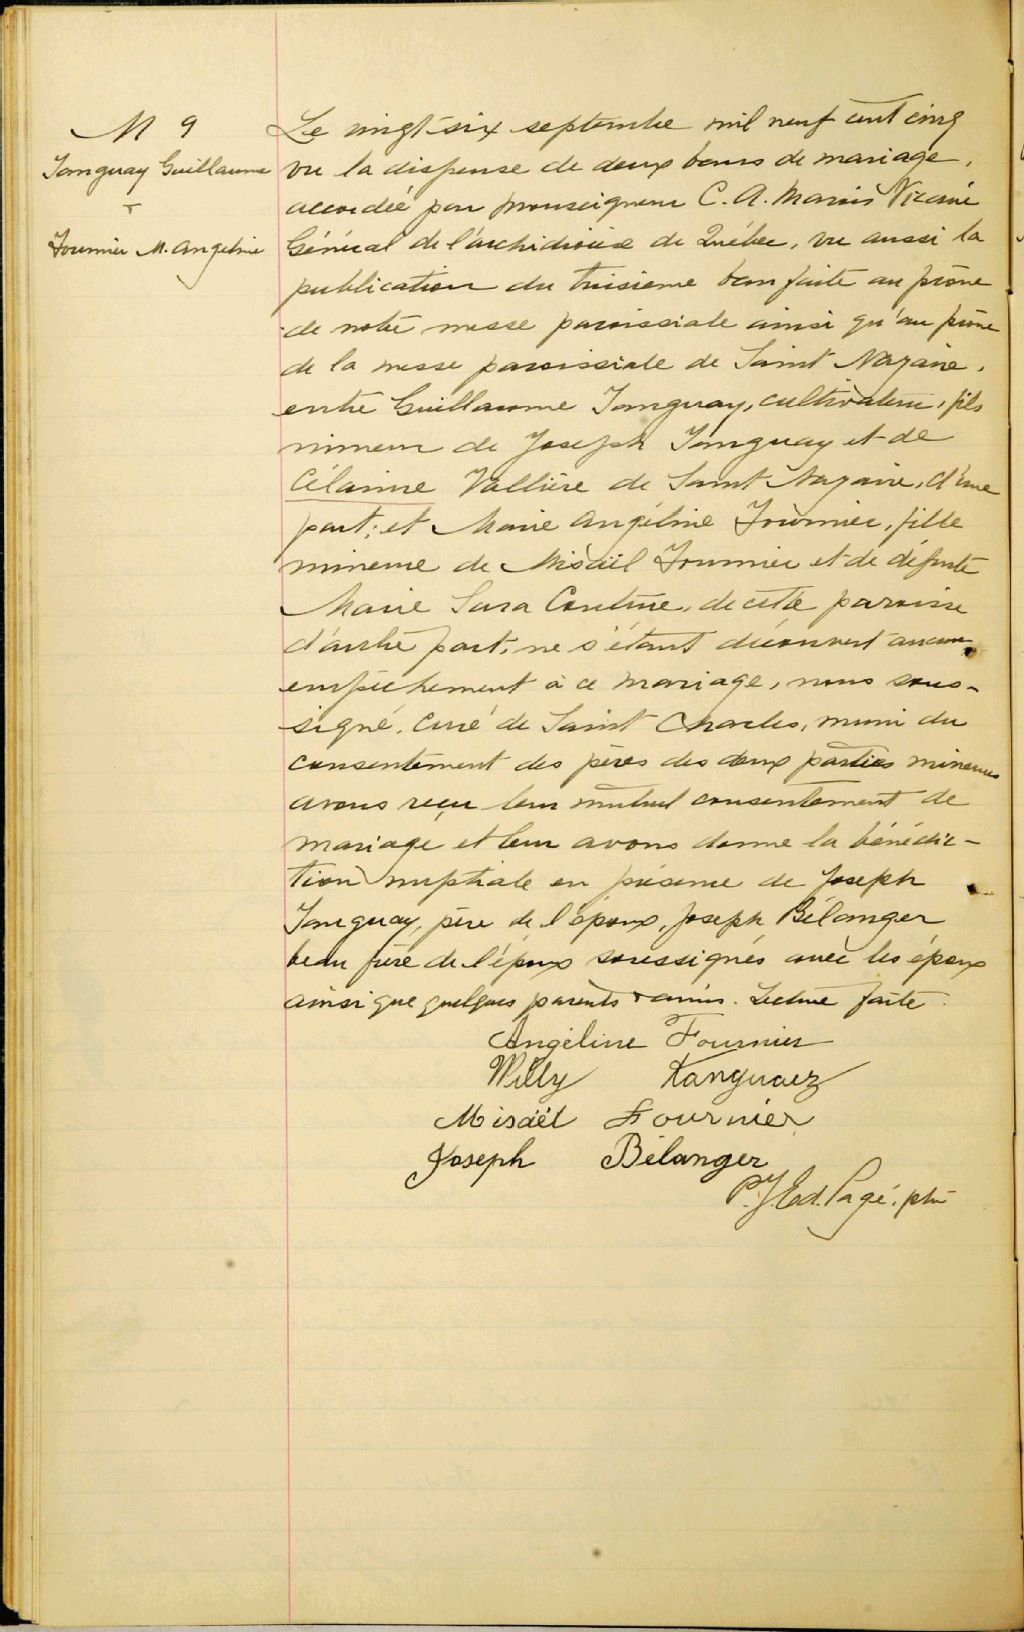 M 9
Tanguay Guillaume
+
Fournier M. Angéline
Le vingt-six septembre mil neuf cent cinq
vu la dispense de deux bans de mariage,
accordée par monseigneur C. A. Marois Vicaire
Général de l'archidiocèse de Québec, vu aussi la
publication du troisieme ban faite au prône
de notre messe paroissiale ainsi qu'au prône
de la messe paroissiale de Saint Nazaire,
entre Guillaume Tanguay, cultivateur, fils
mineur de Joseph Tanguay et de
Célanire Vallière de Saint Nazaire, d'une
part; et Marie Angéline Fournier, fille
mineure de Misaël Fournier et de défunte
Marie Sara Couture, de cette paroisse
d'autre part; ne s'étant découvert aucun
empêchement à ce mariage, nous sous-
signé, curé de Saint Charles, muni du
consentement des pères des deux parties mineures
avons reçu leur mutuel consentement de
mariage et leur avons donné la bénédic-
tion nuptiale en présence de Joseph
Tanguay, père de l'époux, Joseph Bélanger
beau frère de l'époux soussignés avec les époux
ainsi que quelques parents & amis. Lecture faite.
Angéline Fournier
Willy Tanguaez
Misaël Fournier
Joseph Bélanger
P. J. Ed. Pagé, ptre